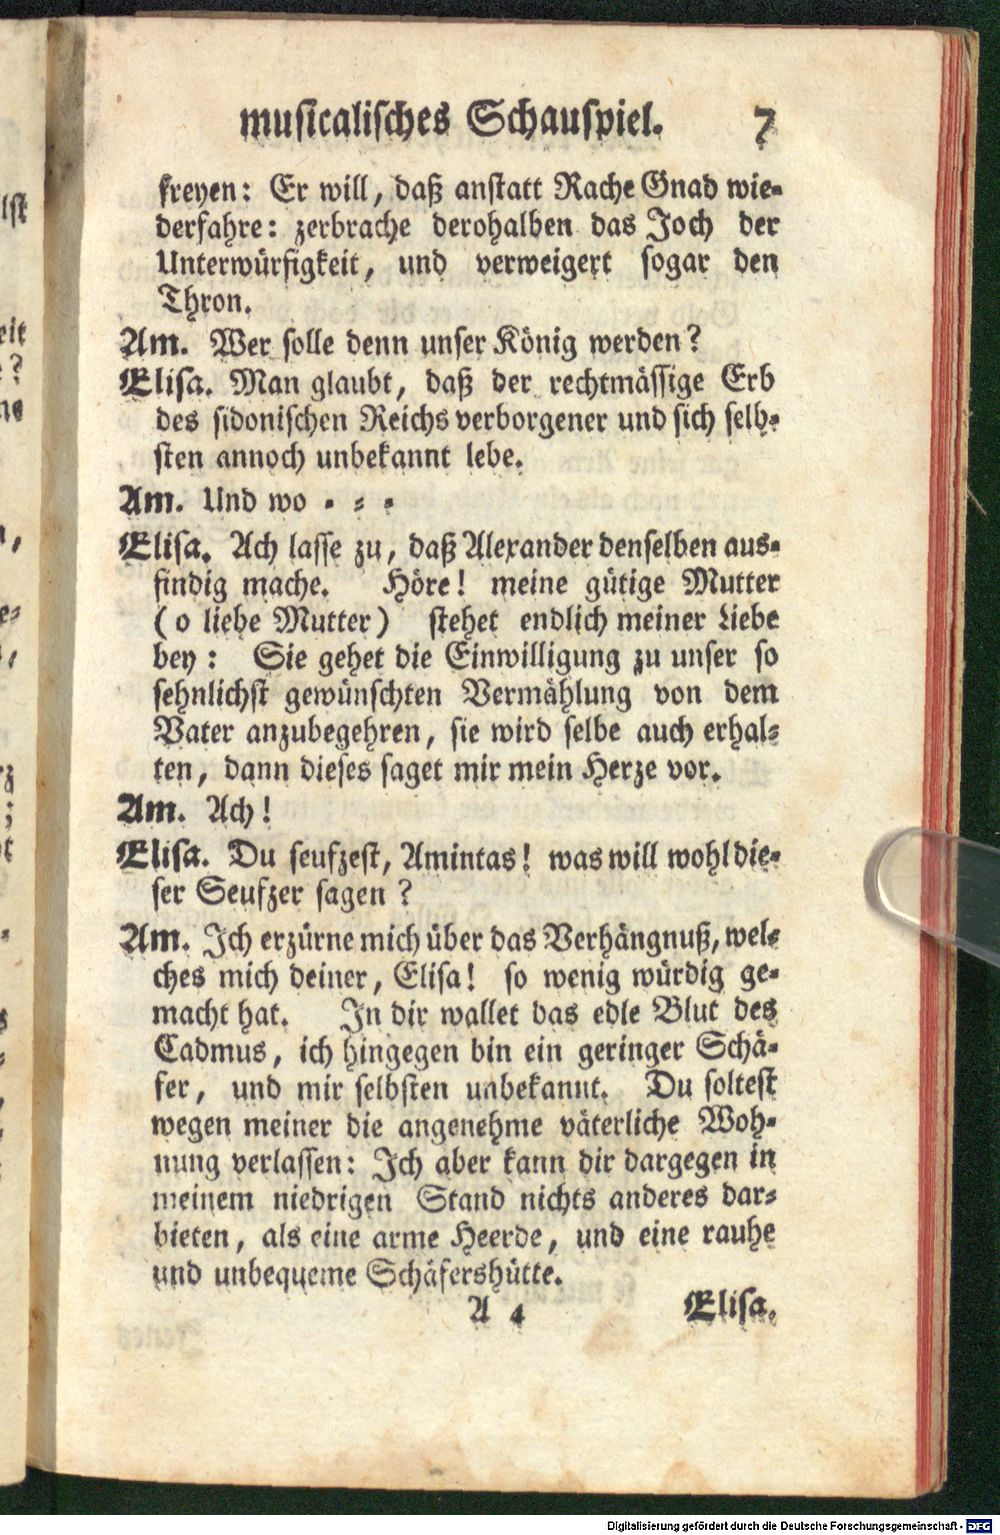 musicalisches Schauspiel. 7
freyen: Er will, daß anstatt Rache Gnad wie-
derfahre: zerbrache derohalben das Joch der
Unterwürfigkeit, und verweigert sogar den
Thron.
Am. Wer solle denn unser König werden?
Elisa. Man glaubt, daß der rechtmässige Erb
des sidonischen Reichs verborgener und sich selb-
sten annoch unbekannt lebe.
Am. Und wo - - -
Elisa. Ach lasse zu, daß Alexander denselben aus-
findig mache. Höre! meine gütige Mutter
(o liebe Mutter) stehet endlich meiner Liebe
bey: Sie gehet die Einwilligung zu unser so
sehnlichst gewünschten Vermählung von dem
Vater anzubegehren, sie wird selbe auch erhal-
ten, dann dieses saget mir mein Herze vor.
Am. Ach!
Elisa. Du seufzest, Amintas! was will wohl die-
ser Seufzer sagen?
Am. Ich erzürne mich über das Verhängnuß, wel-
ches mich deiner, Elisa! so wenig würdig ge-
macht hat. In dir wallet das edle Blut des
Cadmus, ich hingegen bin ein geringer Schä-
fer, und mir selbsten unbekannt. Du soltest
wegen meiner die angenehme väterliche Woh-
nung verlassen: Ich aber kann dir dargegen in
meinem niedrigen Stand nichts anderes dar-
bieten, als eine arme Heerde, und eine rauhe
und unbequeme Schäfershütte.
A 4 Elisa.
Digitalisierung gefördert durch die Deutsche Forschungsgemeinschaft - DFG